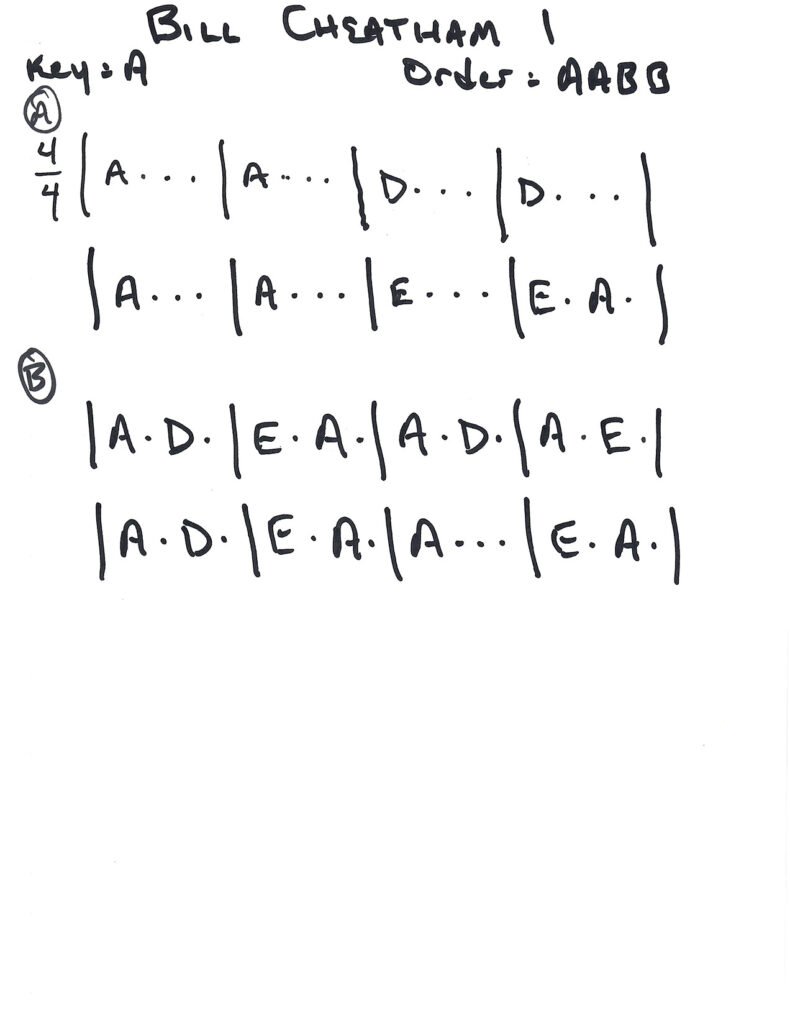 BILL CHEATHAM 1
Key = A Order = AABB
A
4/4 | A . . . | A . . . | D . . . | D . . . |
| A . . . | A . . . | E . . . | E . A . |
B
| A . D . | E . A . | A . D . | A . E . |
| A . D . | E . A . | A . . . | E . A . |